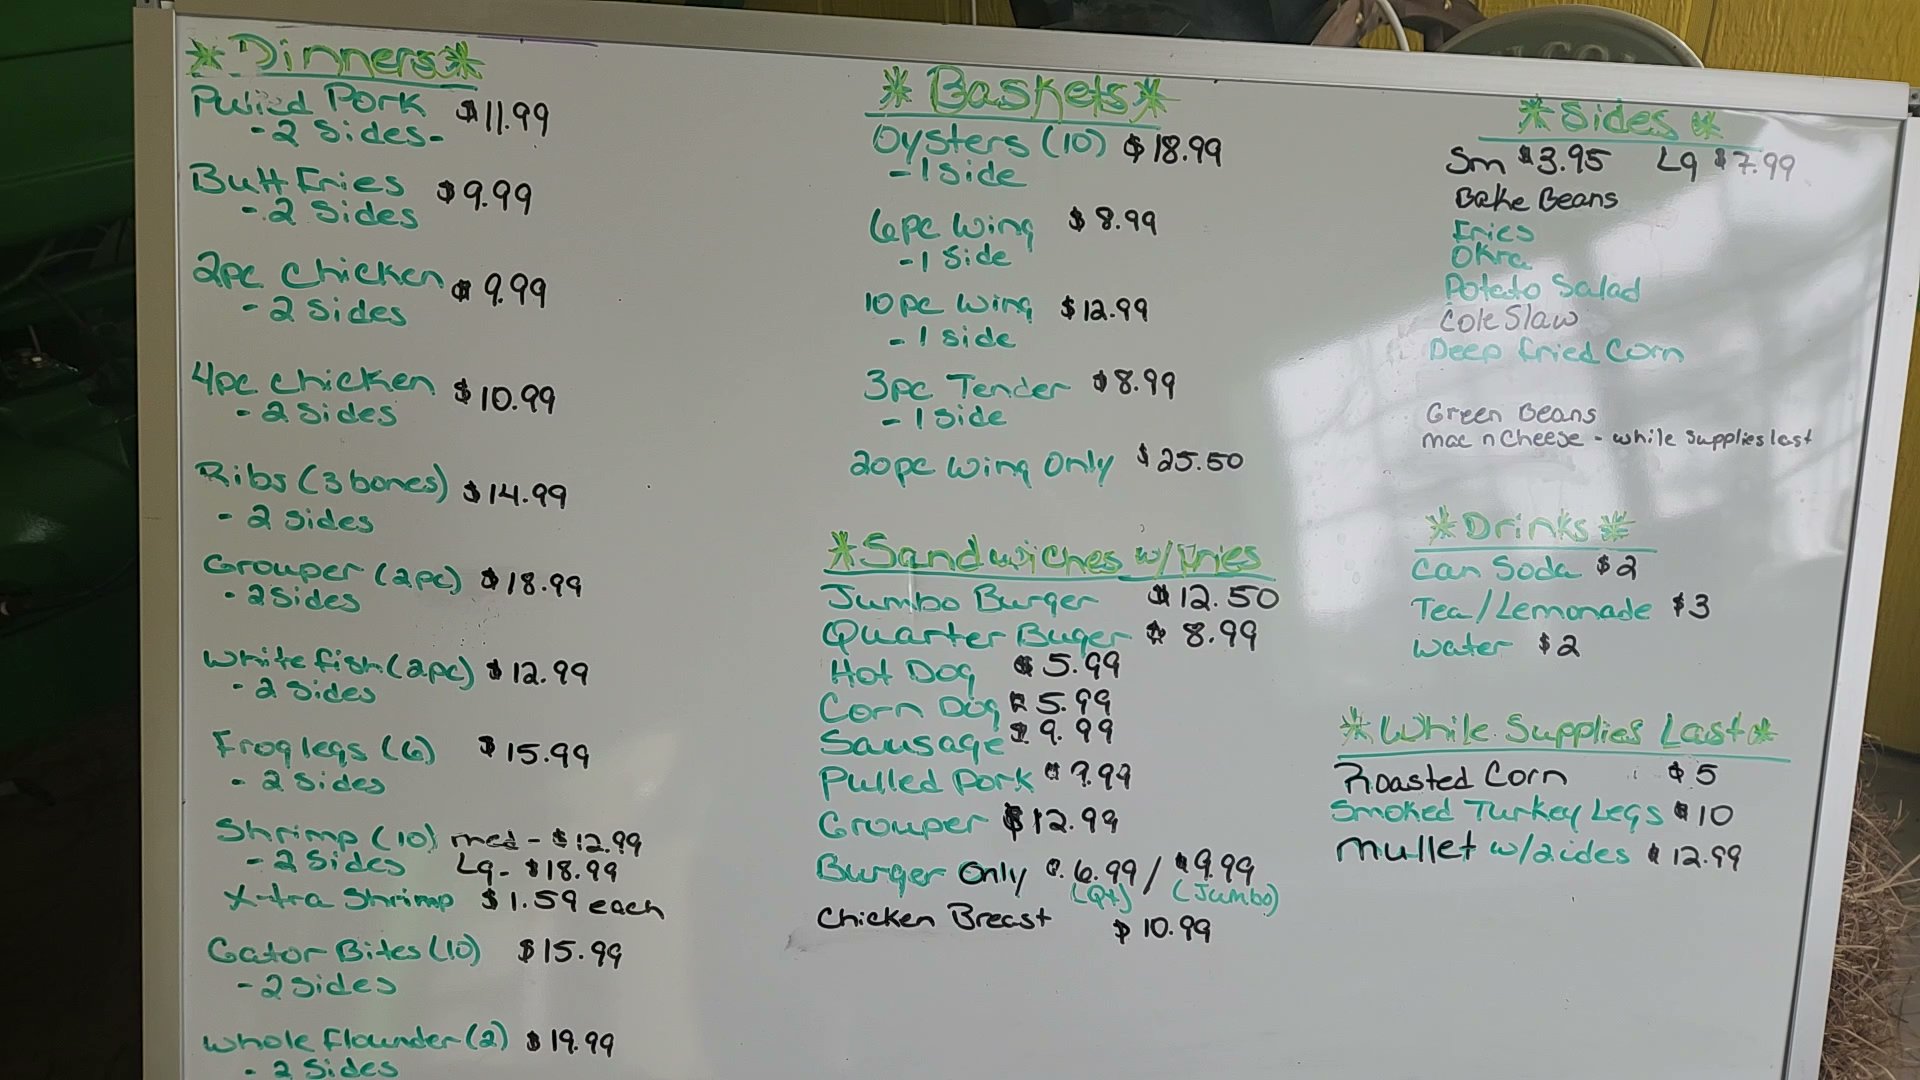 *Dinners*
Pulled Pork $11.99
-2 Sides-
Butt Fries $9.99
-2 Sides
2pc Chicken $9.99
-2 Sides
4pc chicken $10.99
-2 Sides
Ribs (3 bones) $14.99
-2 Sides
Grouper (2pc) $18.99
-2 Sides
white fish (2pc) $12.99
-2 Sides
Frog legs (6) $15.99
-2 Sides
Shrimp (10) med - $12.99
-2 Sides Lg - $18.99
X-tra Shrimp $1.59 each
Gator Bites (10) $15.99
-2 Sides
whole flounder (2) $19.99
-2 Sides
*Baskets*
Oysters (10) $18.99
-1 Side
6pc Wing $8.99
-1 Side
10pc Wing $12.99
-1 Side
3pc Tender $8.99
-1 Side
20pc Wing Only $25.50
*Sandwiches w/Fries
Jumbo Burger $12.50
Quarter Buger $8.99
Hot Dog $5.99
Corn Dog $5.99
Sausage $9.99
Pulled Pork $9.99
Grouper $12.99
Burger Only $6.99 / $9.99
(Qt) (Jumbo)
Chicken Breast $10.99
*Sides*
Sm $3.95 Lg $7.99
Bake Beans
Fries
Okra
Potato Salad
Cole Slaw
Deep Fried Corn
Green Beans
mac n Cheese - while supplies last
*Drinks*
Can Soda $2
Tea/Lemonade $3
water $2
*While Supplies Last*
Roasted Corn $5
Smoked Turkey Legs $10
Mullet w/2 ides $12.99